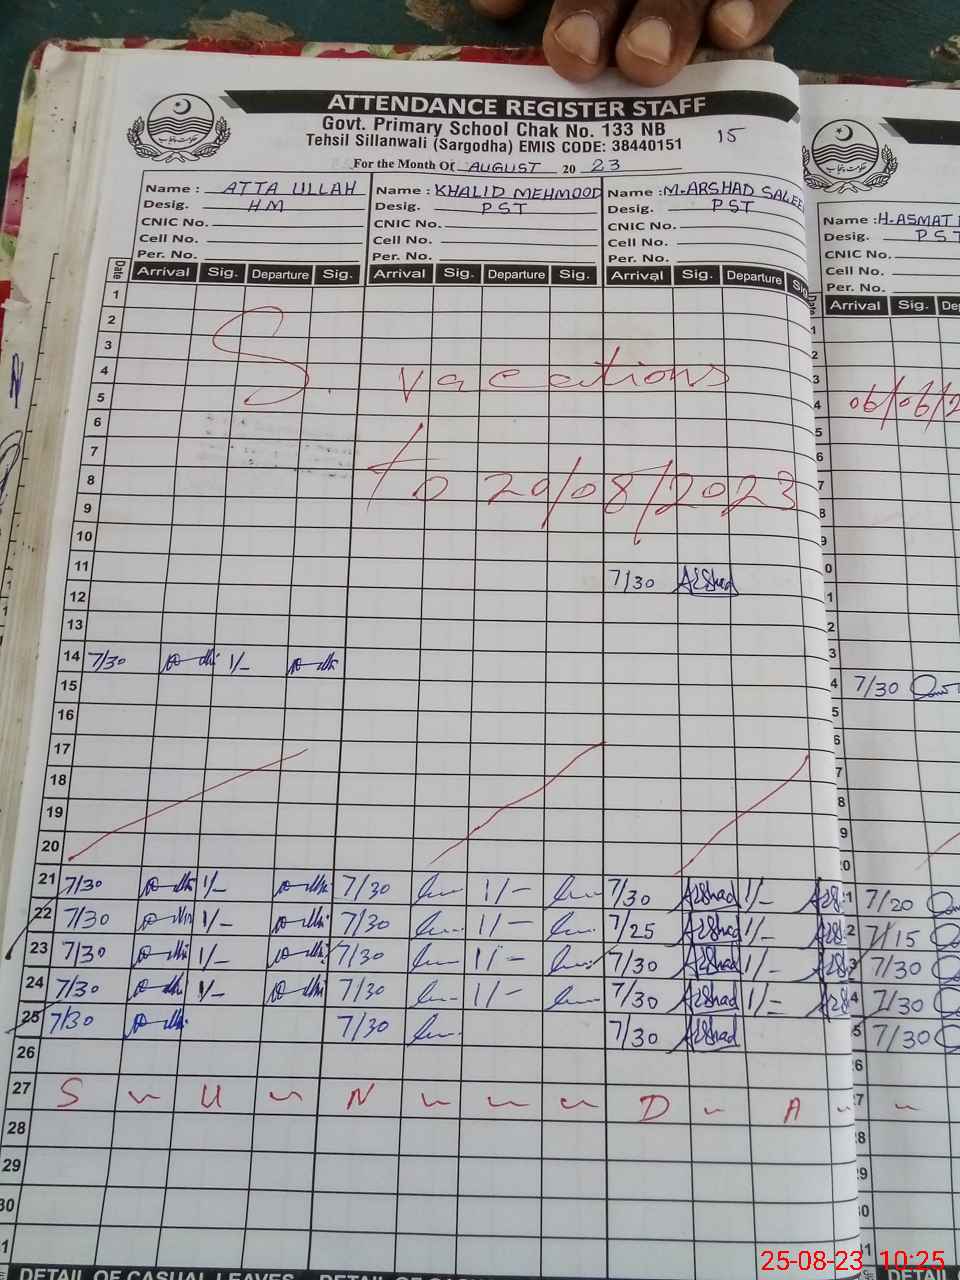 ATTENDANCE REGISTER STAFF
Govt. Primary School Chak No. 133 NB
Tehsil Sillanwali (Sargodha) EMIS CODE: 38440151
15
For the Month Of AUGUST 20 23
Name : ATTA ULLAH Name : KHALID MEHMOOD Name : M. ARSHAD SALEE
Desig. HM Desig. PST Desig. PST
CNIC No. CNIC No. CNIC No.
Cell No. Cell No. Cell No.
Per. No. Per. No. Per. No.
Name : H. ASMAT
Desig. PST
CNIC No.
Cell No.
Per. No.
Date Arrival Sig. Departure Sig. Arrival Sig. Departure Sig. Arrival Sig. Departure Sig.
Date Arrival Sig. De
1
2
3
4
5
S. vacations
06/06/2
6
7
8
9
to 20/08/2023
10
11 7/30 Arshad
12
13
14 7/30 1/-
7/30
15
16
17
18
19
20
21 7/30 1/- 7/30 1/- 7/30 Arshad 1/- 7/20
22 7/30 1/- 7/30 1/- 7/25 Arshad 1/- 7/15
23 7/30 1/- 7/30 1/- 7/30 Arshad 1/- 7/30
24 7/30 1/- 7/30 1/- 7/30 Arshad 1/- 7/30
25 7/30 7/30 7/30 Arshad 7/30
26
27 S U N D A
28
29
30
31
DETAIL OF CASUAL LEAVES DETAIL OF CAS
25-08-23 10:25